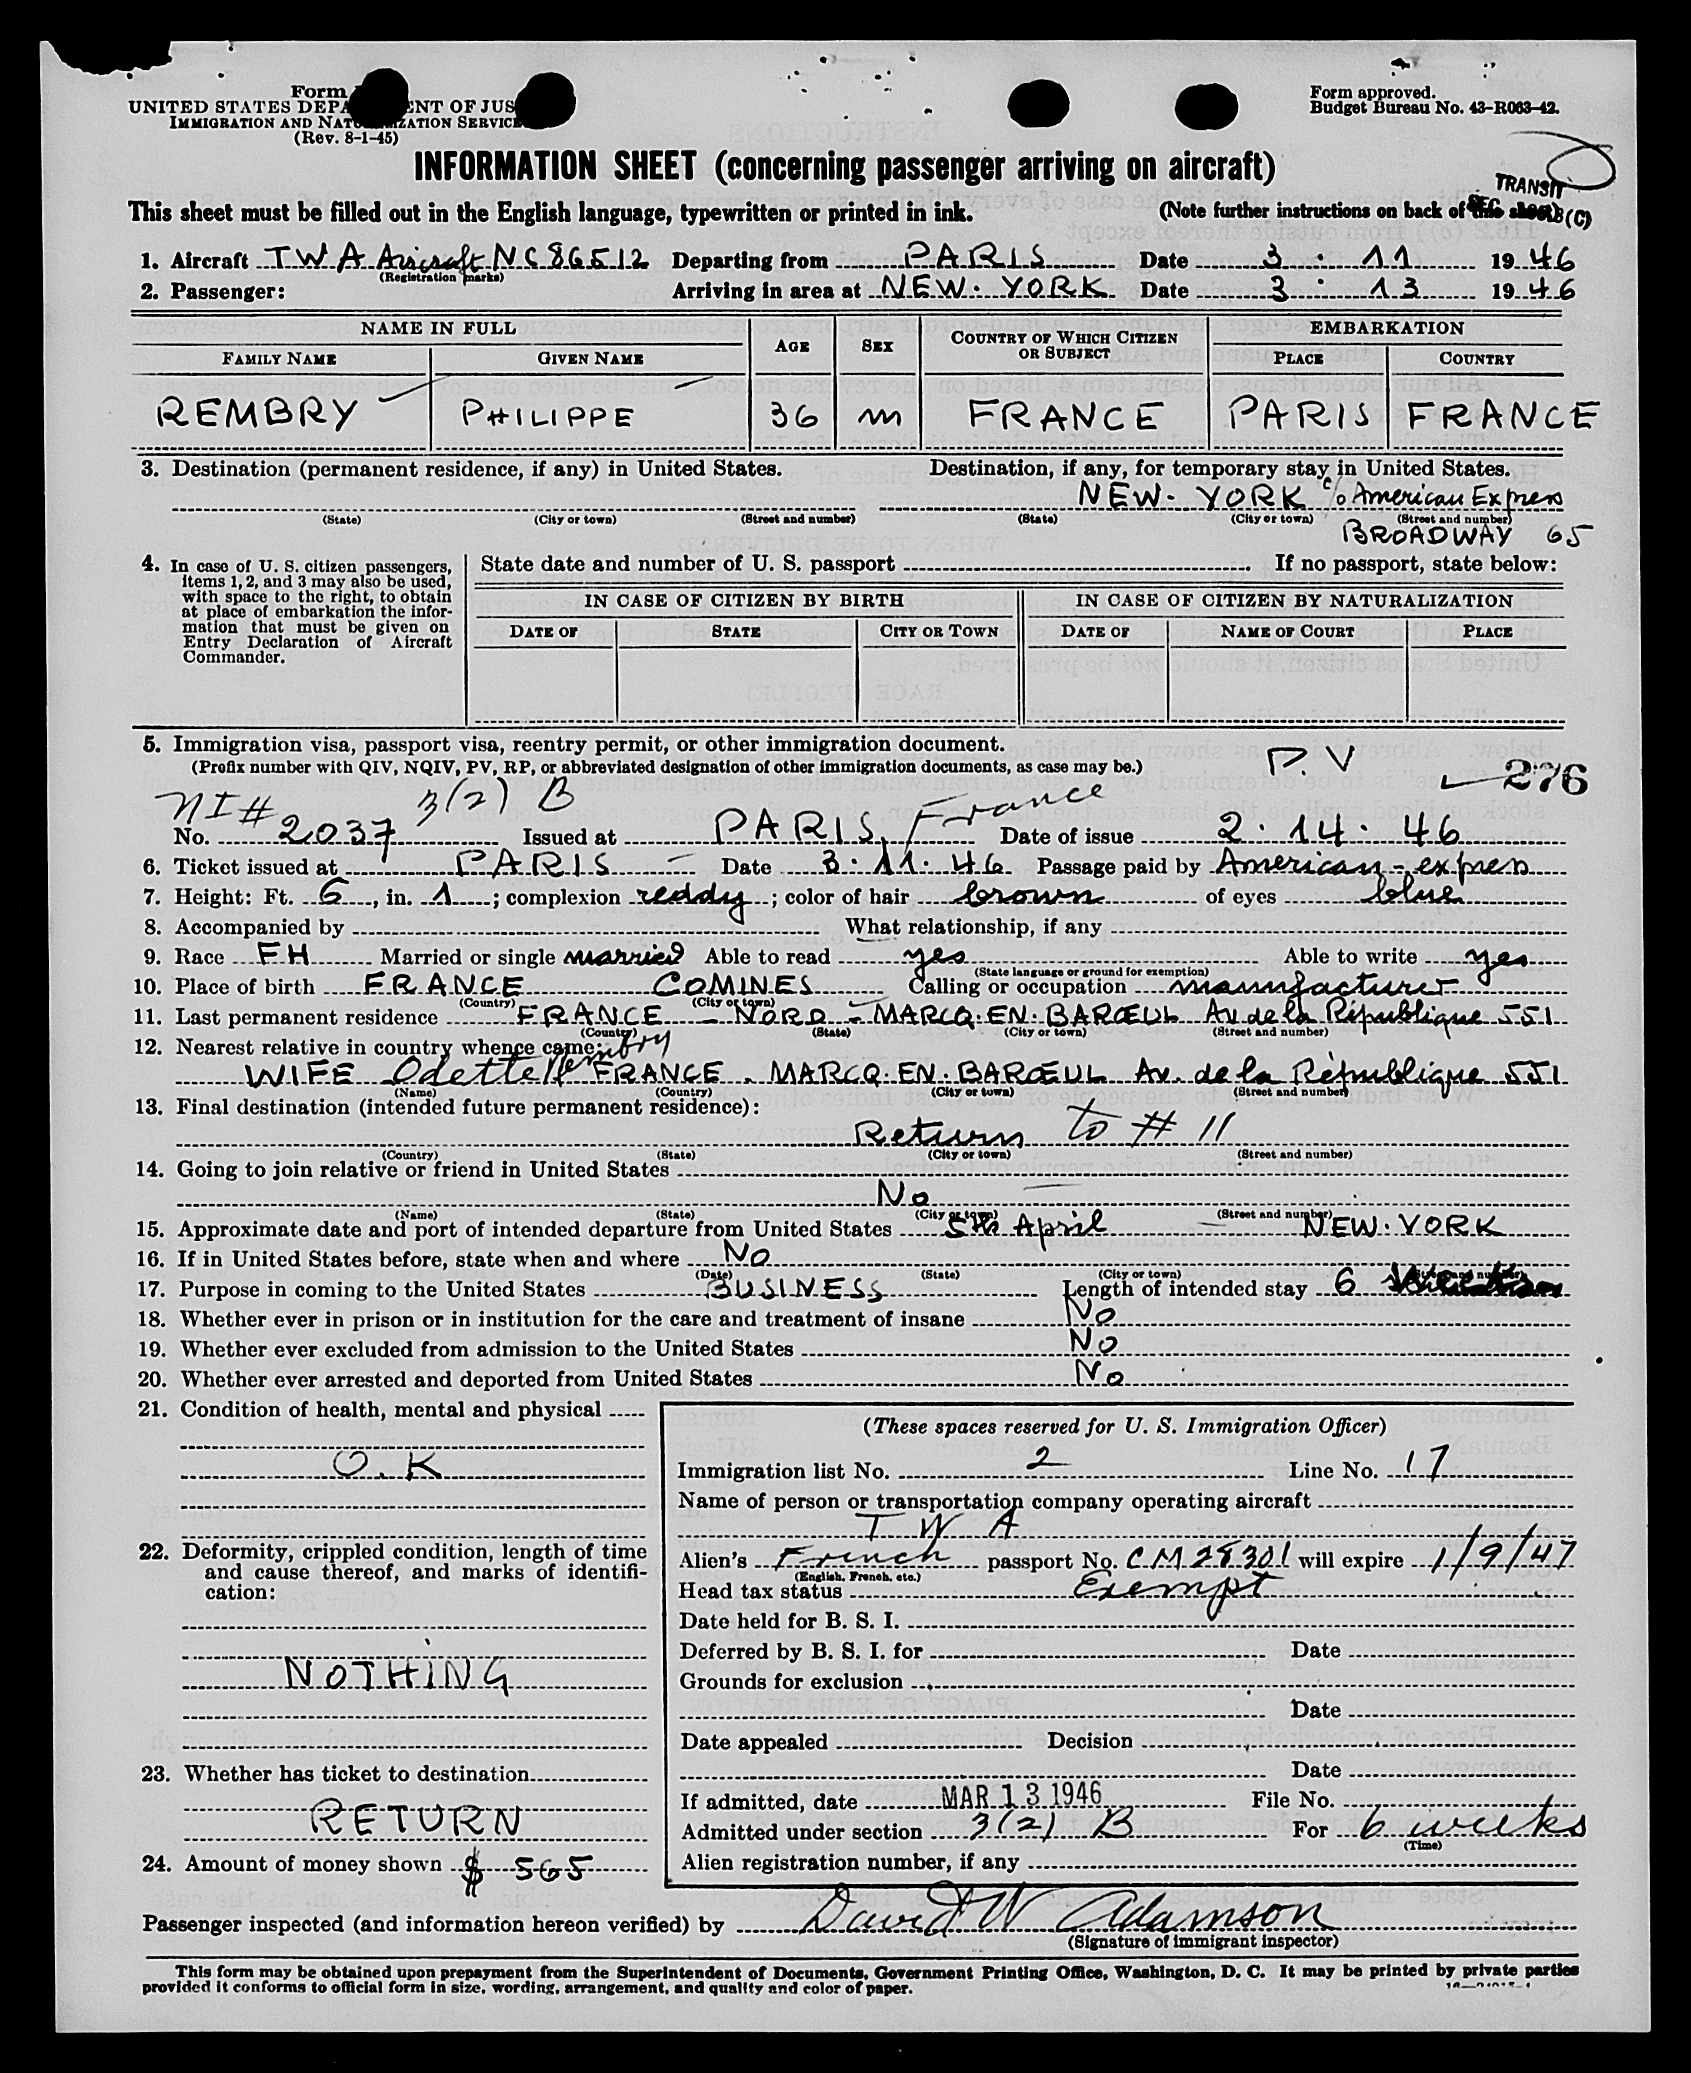 Form
UNITED STATES DEPA ENT OF JUS
IMMIGRATION AND NAT ZATION SERVICE
(Rev. 8-1-45)
Form approved.
Budget Bureau No. 43-R063-42.
INFORMATION SHEET (concerning passenger arriving on aircraft)
TRANSIT
This sheet must be filled out in the English language, typewritten or printed in ink. (Note further instructions on back of this sheet)
1. Aircraft TWA Aircraft NC86512 Departing from PARIS Date 3 · 11 1946
(Registration marks)
2. Passenger: Arriving in area at NEW·YORK Date 3 · 13 1946
NAME IN FULL AGE SEX COUNTRY OF WHICH CITIZEN OR SUBJECT EMBARKATION
FAMILY NAME GIVEN NAME PLACE COUNTRY
REMBRY PHILIPPE 36 m FRANCE PARIS FRANCE
3. Destination (permanent residence, if any) in United States. Destination, if any, for temporary stay in United States.
NEW·YORK c/o American Express
(State) (City or town) (Street and number) (State) (City or town) (Street and number)
BROADWAY 65
4. In case of U. S. citizen passengers, items 1, 2, and 3 may also be used, with space to the right, to obtain at place of embarkation the information that must be given on Entry Declaration of Aircraft Commander.
State date and number of U. S. passport If no passport, state below:
IN CASE OF CITIZEN BY BIRTH IN CASE OF CITIZEN BY NATURALIZATION
DATE OF STATE CITY OR TOWN DATE OF NAME OF COURT PLACE
5. Immigration visa, passport visa, reentry permit, or other immigration document.
(Prefix number with QIV, NQIV, PV, RP, or abbreviated designation of other immigration documents, as case may be.) P.V 276
NI# 3(2) B
No. 2037 Issued at PARIS, France Date of issue 2·14·46
6. Ticket issued at PARIS Date 3·11·46 Passage paid by American-expres
7. Height: Ft. 6, in. 1; complexion reddy; color of hair brown of eyes blue
8. Accompanied by What relationship, if any
9. Race FH Married or single married Able to read yes Able to write yes
(State language or ground for exemption)
10. Place of birth FRANCE COMINES Calling or occupation manufacturer
(Country) (City or town)
11. Last permanent residence FRANCE - NORD - MARCQ·EN·BARŒUL Av. de la République 551
(Country) (State) (City or town) (Street and number)
12. Nearest relative in country whence came:
WIFE Odette Rembry FRANCE. MARCQ·EN·BARŒUL Av. de la République 551
(Name) (Country) (City or town) (Street and number)
13. Final destination (intended future permanent residence):
Return to # 11
(Country) (State) (City or town) (Street and number)
14. Going to join relative or friend in United States
No
(Name) (State) (City or town) (Street and number)
15. Approximate date and port of intended departure from United States 5th April NEW·YORK
16. If in United States before, state when and where No
(Date) (State) (City or town) (Street and number)
17. Purpose in coming to the United States BUSINESS Length of intended stay 6
18. Whether ever in prison or in institution for the care and treatment of insane No
19. Whether ever excluded from admission to the United States No
20. Whether ever arrested and deported from United States No
21. Condition of health, mental and physical
O.K
22. Deformity, crippled condition, length of time and cause thereof, and marks of identification:
NOTHING
23. Whether has ticket to destination
RETURN
24. Amount of money shown $ 565
(These spaces reserved for U. S. Immigration Officer)
Immigration list No. 2 Line No. 17
Name of person or transportation company operating aircraft
TWA
Alien's French passport No. CM 28301 will expire 1/9/47
(English, French, etc.)
Head tax status Exempt
Date held for B. S. I.
Deferred by B. S. I. for Date
Grounds for exclusion
Date
Date appealed Decision
Date
If admitted, date MAR 13 1946 File No.
Admitted under section 3(2) B For 6 weeks
(Time)
Alien registration number, if any
Passenger inspected (and information hereon verified) by David W Adamson
(Signature of immigrant inspector)
This form may be obtained upon prepayment from the Superintendent of Documents, Government Printing Office, Washington, D. C. It may be printed by private parties
provided it conforms to official form in size, wording, arrangement, and quality and color of paper.